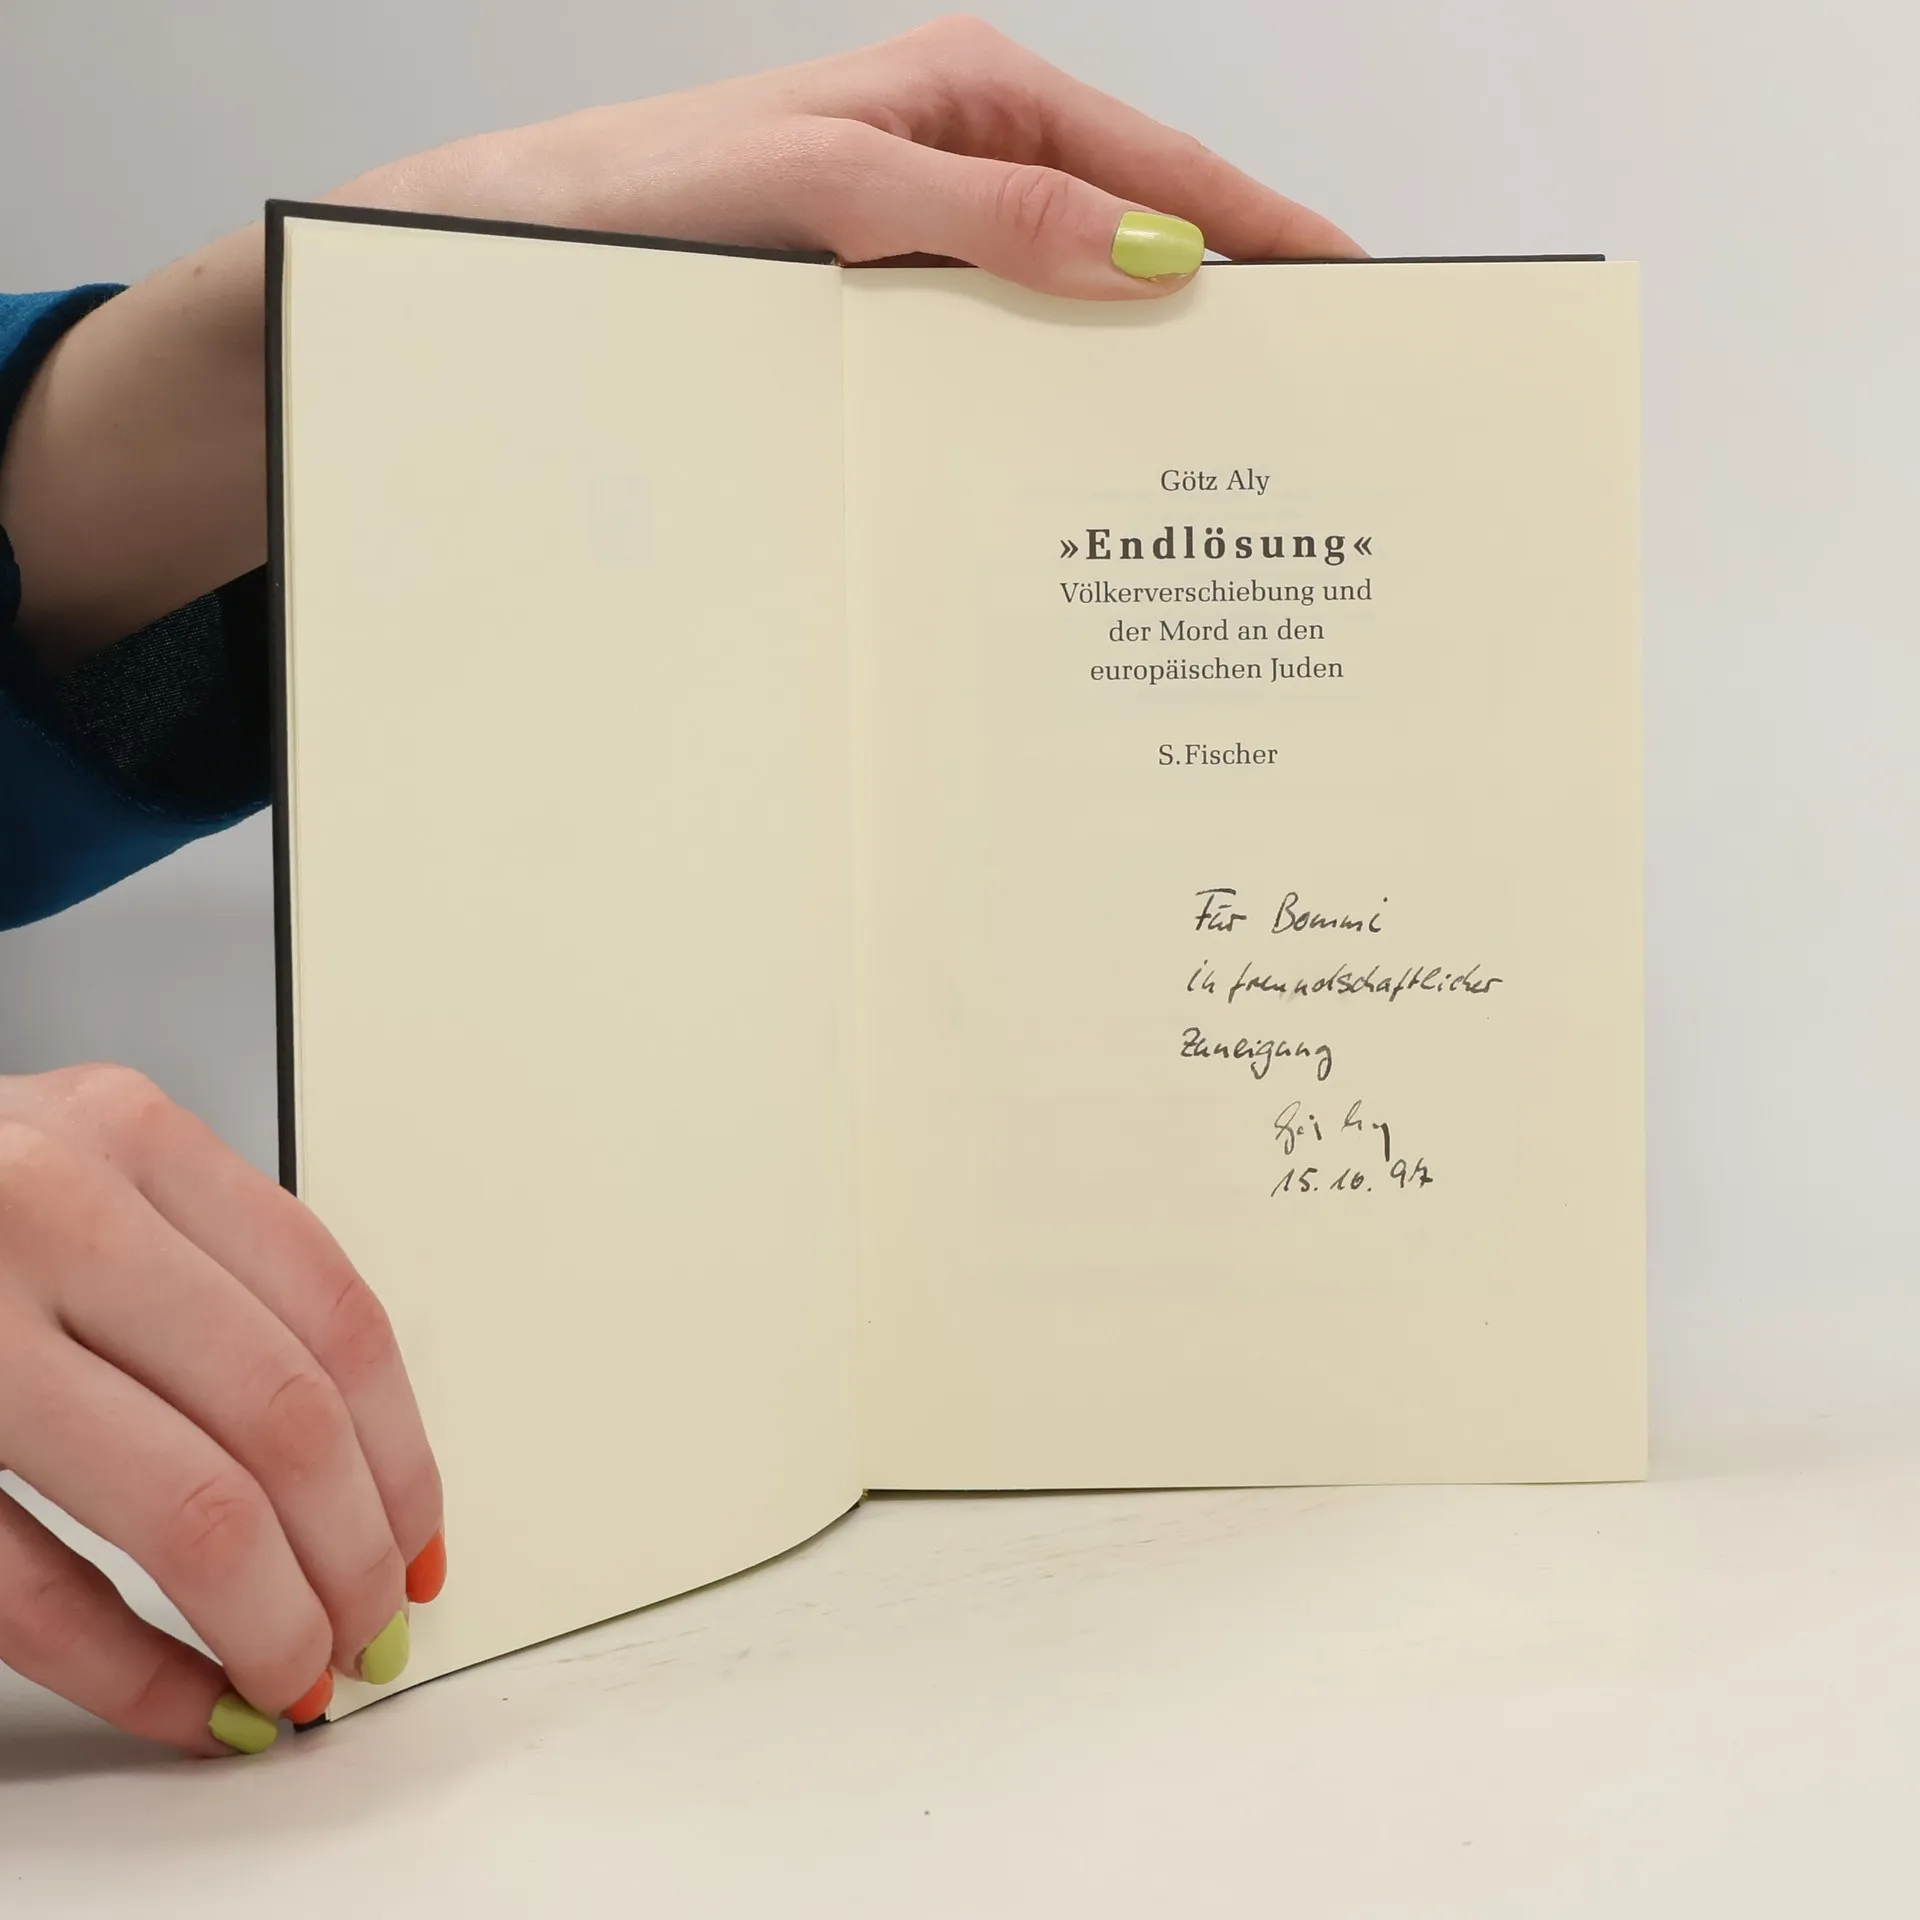 Götz Aly
»Endlösung«
Völkerverschiebung und
der Mord an den
europäischen Juden
S. Fischer
Für Bommi
in freundschaftlicher
Zuneigung
Götz Aly
15. 10. 97